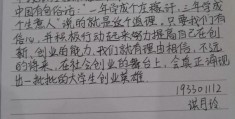 中国有句俗话："一年学成个庄稼汉，三年学成
个生意人"说的就是这个道理，只要我们有
信心，并积极行动起来努力提高自己在创
新、创业的能力，我们就有理由相信，不远
的将来，在社会创业的舞台上，会真正涌现
出一批批的大学生创业英雄
193301112
谌月玲